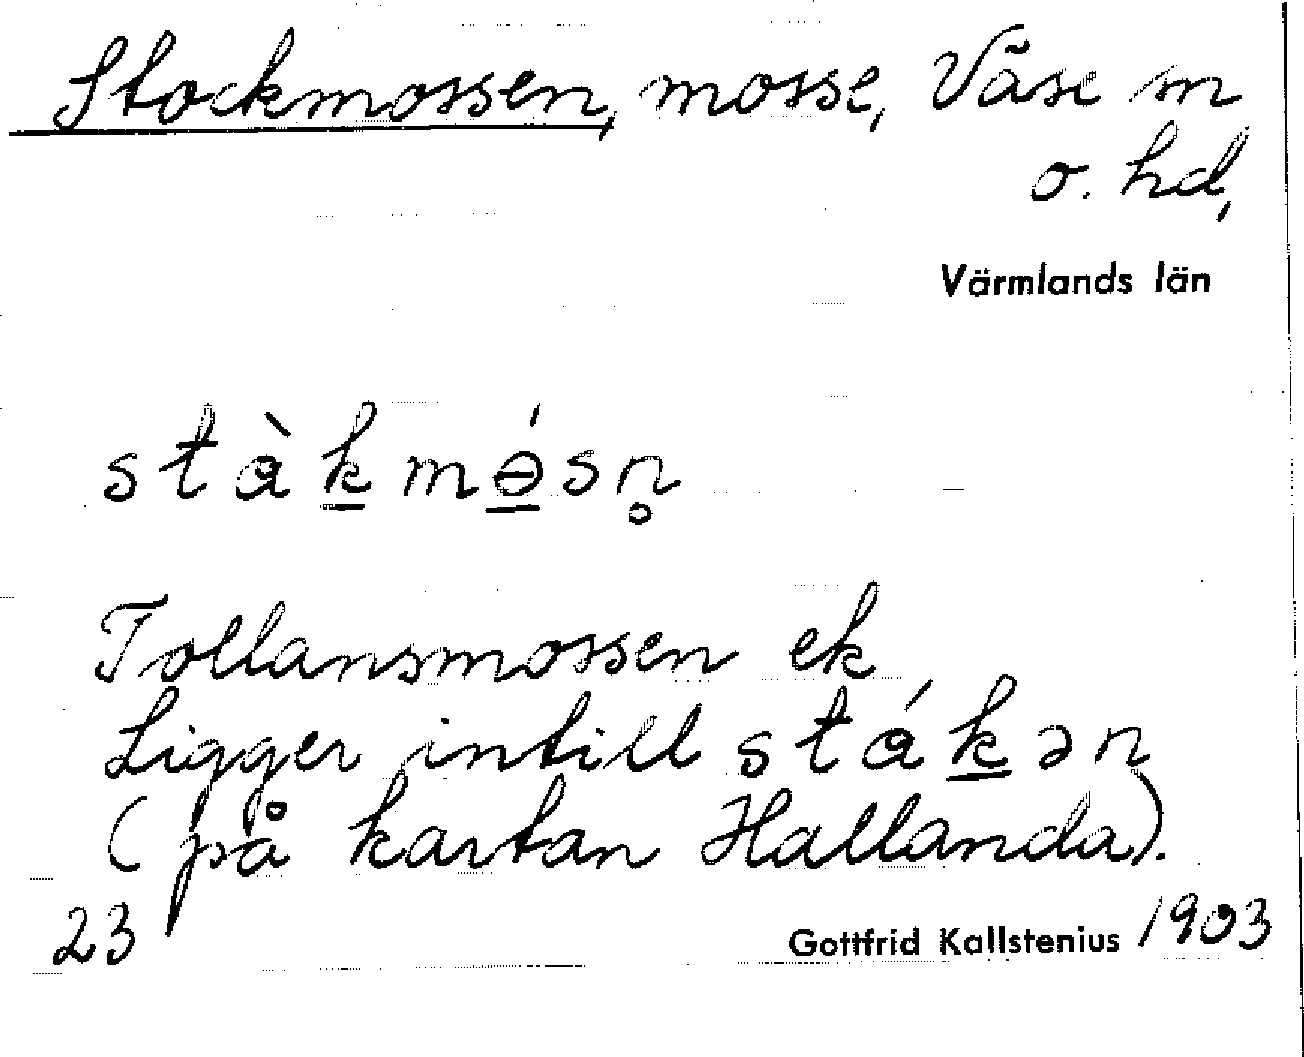 Stockmossen, mosse, Väse sn
o. hd,
Värmlands län
stàk̲mɵ̲́sn̥
Tollansmossen ek
Ligger intill sták̲ən
(på kartan Hallanda).
23 Gottfrid Kallstenius 1903